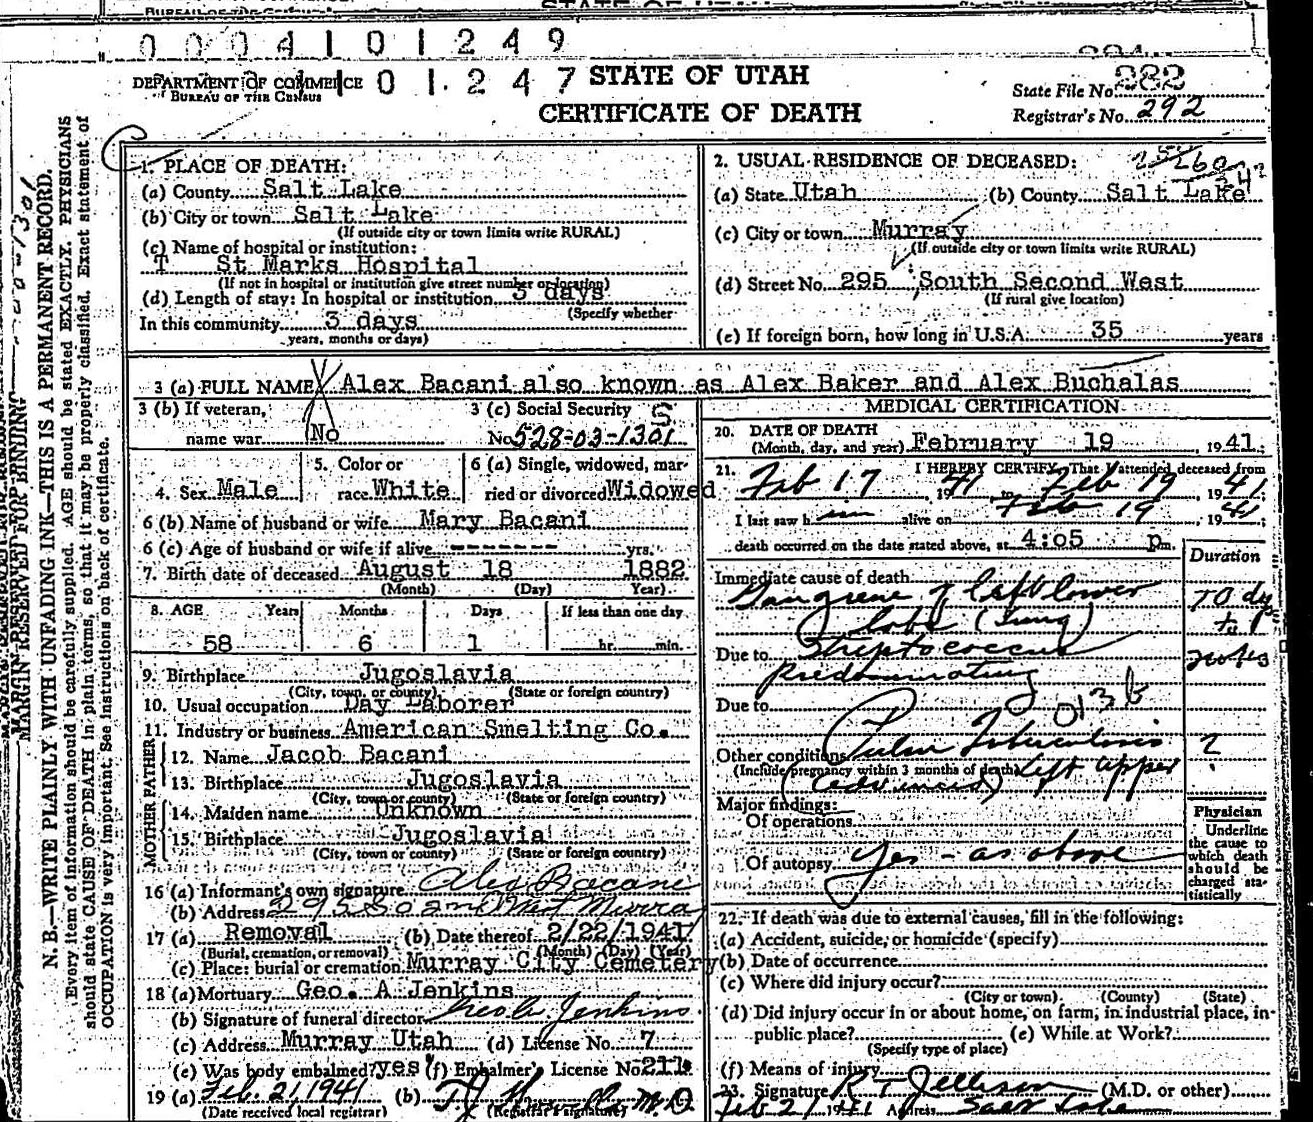 0004101249
DEPARTMENT OF COMMERCE
BUREAU OF THE CENSUS
01247
STATE OF UTAH
CERTIFICATE OF DEATH
State File No. 282
Registrar's No. 292
MARGIN RESERVED FOR BINDING
N. B.—WRITE PLAINLY WITH UNFADING INK—THIS IS A PERMANENT RECORD.
Every item of information should be carefully supplied. AGE should be stated EXACTLY. PHYSICIANS
should state CAUSE OF DEATH in plain terms, so that it may be properly classified. Exact statement of
OCCUPATION is very important. See instructions on back of certificate.
1. PLACE OF DEATH:
(a) County Salt Lake
(b) City or town Salt Lake
(If outside city or town limits write RURAL)
(c) Name of hospital or institution:
T St Marks Hospital
(If not in hospital or institution give street number or location)
(d) Length of stay: In hospital or institution 3 days
(Specify whether
In this community 3 days
years, months or days)
2. USUAL RESIDENCE OF DECEASED:
260
(a) State Utah (b) County Salt Lake
(c) City or town Murray
(If outside city or town limits write RURAL)
(d) Street No. 295 South Second West
(If rural give location)
(e) If foreign born, how long in U.S.A. 35 years
3 (a) FULL NAME Alex Bacani also known as Alex Baker and Alex Buchalas
3 (b) If veteran,
name war No
3 (c) Social Security
No. 528-03-1301
4. Sex Male
5. Color or
race White
6 (a) Single, widowed, mar-
ried or divorced Widowed
6 (b) Name of husband or wife Mary Bacani
6 (c) Age of husband or wife if alive ------- yrs.
7. Birth date of deceased August 18 1882
(Month) (Day) Year)
8. AGE Years Months Days If less than one day
58 6 1 hr. min.
9. Birthplace Jugoslavia
(City, town, or county) (State or foreign country)
10. Usual occupation Day Laborer
11. Industry or business American Smelting Co.
FATHER
12. Name Jacob Bacani
13. Birthplace Jugoslavia
(City, town or county) (State or foreign country)
MOTHER
14. Maiden name Unknown
15. Birthplace Jugoslavia
(City, town or county) (State or foreign country)
16 (a) Informant's own signature Alex Bacani
(b) Address 295 So 2nd West Murray
17 (a) Removal (b) Date thereof 2/22/1941
(Burial, cremation, or removal) (Month) (Day) (Year)
(c) Place: burial or cremation Murray City Cemetery
18 (a) Mortuary Geo. A Jenkins
(b) Signature of funeral director Jenkins
(c) Address Murray Utah (d) License No. 7
(e) Was body embalmed? yes (f) Embalmer's License No. 211
19 (a) Feb. 21 1941 (b) M.D
(Date received local registrar) (Registrar's signature)
MEDICAL CERTIFICATION
20. DATE OF DEATH
(Month, day, and year) February 19, 1941;
21. I HEREBY CERTIFY, That I attended deceased from
Feb 17, 1941, to Feb 19, 1941;
I last saw him alive on Feb 19, 1941;
death occurred on the date stated above, at 4:05 pm.
Duration
Immediate cause of death
Gangrene of left lower
lobe (lung)
10 dys
to
2 wks
Due to Streptococcus
Predominating
Due to
013b
Other conditions Pulm Tuberculosis ?
(Include pregnancy within 3 months of death) left upper
(advanced)
Major findings:
Of operations
Of autopsy yes - as above
Physician
Underline
the cause to
which death
should be
charged sta-
tistically
22. If death was due to external causes, fill in the following:
(a) Accident, suicide, or homicide (specify)
(b) Date of occurrence
(c) Where did injury occur?
(City or town) (County) (State)
(d) Did injury occur in or about home, on farm, in industrial place, in
public place? (e) While at Work?
(Specify type of place)
(f) Means of injury
23. Signature R T Jellison (M.D. or other)
Feb 21 1941 Address Salt Lake